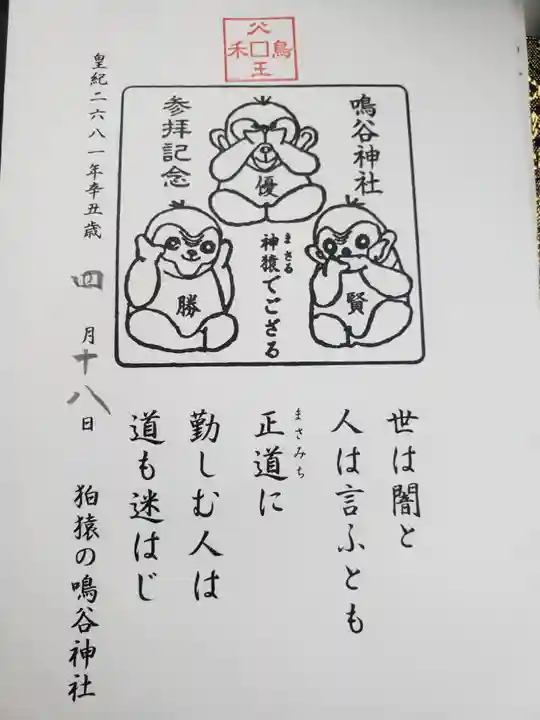 鳴谷神社
参拝記念
優
賢
勝
神猿でござる
まさる
世は闇と
人は言ふとも
正道に
まさみち
勤しむ人は
道も迷はじ
皇紀二六八一年辛丑歳
四月十八日
狛猿の鳴谷神社